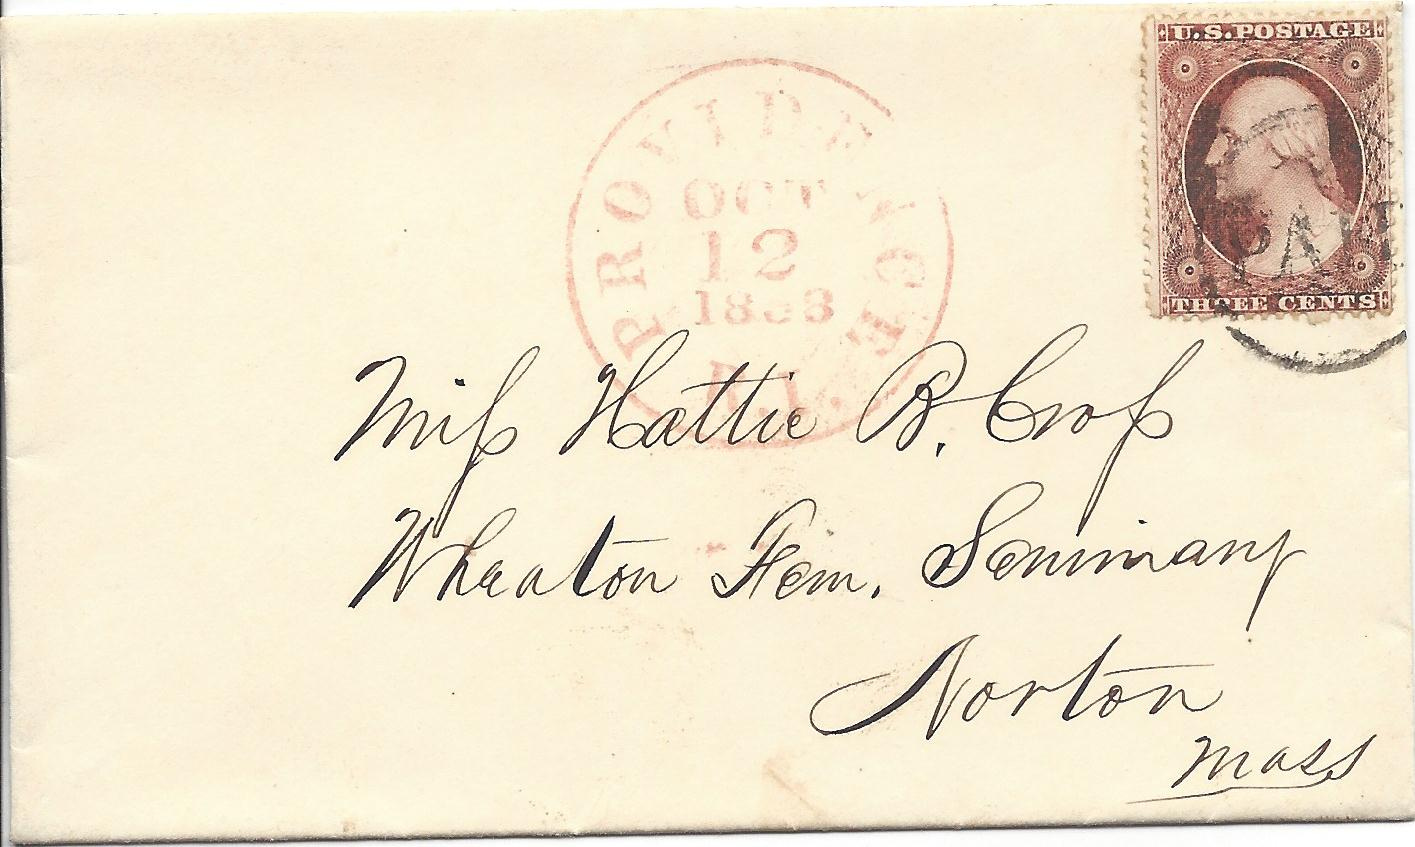 U.S. POSTAGE
THREE CENTS
PAID
PROVIDENCE
OCT
12
1858
R.I.
Miſs Hattie B. Croſs
Wheaton Fem. Seminary
Norton
Mass